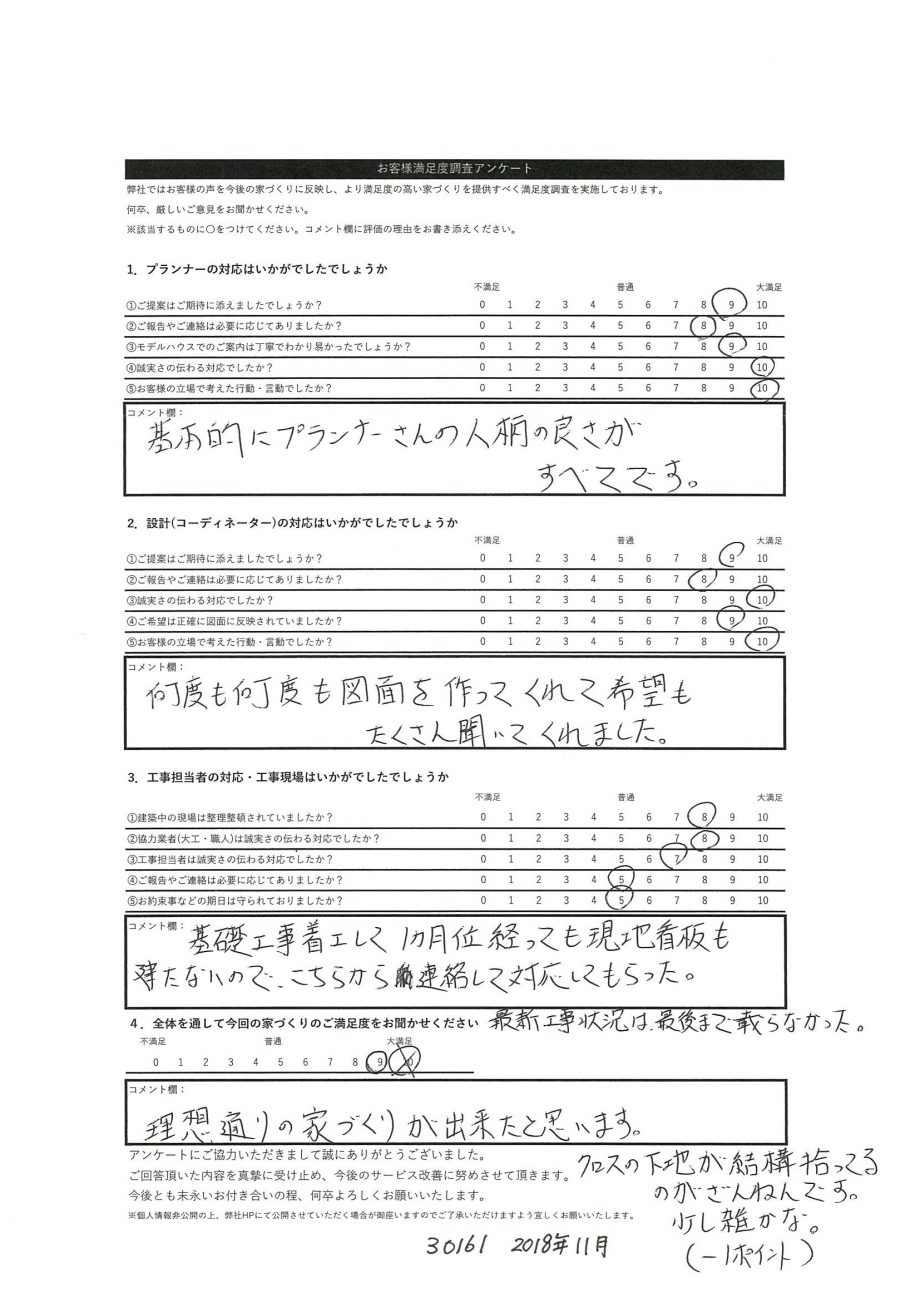 お客様満足度調査アンケート
弊社ではお客様の声を今後の家づくりに反映し、より満足度の高い家づくりを提供すべく満足度調査を実施しております。
何卒、厳しいご意見をお聞かせください。
※該当するものに〇をつけてください。コメント欄に評価の理由をお書き添えください。
1．プランナーの対応はいかがでしたでしょうか
不満足 普通 大満足
①ご提案はご期待に添えましたでしょうか？ 0 1 2 3 4 5 6 7 8 9 10
②ご報告やご連絡は必要に応じてありましたか？ 0 1 2 3 4 5 6 7 8 9 10
③モデルハウスでのご案内は丁寧でわかり易かったでしょうか？ 0 1 2 3 4 5 6 7 8 9 10
④誠実さの伝わる対応でしたか？ 0 1 2 3 4 5 6 7 8 9 10
⑤お客様の立場で考えた行動・言動でしたか？ 0 1 2 3 4 5 6 7 8 9 10
コメント欄：
基本的にプランナーさんの人柄の良さが
すべてです。
2．設計(コーディネーター)の対応はいかがでしたでしょうか
不満足 普通 大満足
①ご提案はご期待に添えましたでしょうか？ 0 1 2 3 4 5 6 7 8 9 10
②ご報告やご連絡は必要に応じてありましたか？ 0 1 2 3 4 5 6 7 8 9 10
③誠実さの伝わる対応でしたか？ 0 1 2 3 4 5 6 7 8 9 10
④ご希望は正確に図面に反映されていましたか？ 0 1 2 3 4 5 6 7 8 9 10
⑤お客様の立場で考えた行動・言動でしたか？ 0 1 2 3 4 5 6 7 8 9 10
コメント欄：
何度も何度も図面を作ってくれて希望も
たくさん聞いてくれました。
3．工事担当者の対応・工事現場はいかがでしたでしょうか
不満足 普通 大満足
①建築中の現場は整理整頓されていましたか？ 0 1 2 3 4 5 6 7 8 9 10
②協力業者(大工・職人)は誠実さの伝わる対応でしたか？ 0 1 2 3 4 5 6 7 8 9 10
③工事担当者は誠実さの伝わる対応でしたか？ 0 1 2 3 4 5 6 7 8 9 10
④ご報告やご連絡は必要に応じてありましたか？ 0 1 2 3 4 5 6 7 8 9 10
⑤お約束事などの期日は守られておりましたか？ 0 1 2 3 4 5 6 7 8 9 10
コメント欄：
基礎工事着工して1カ月位経っても現地看板も
建たないので、こちらから連絡して対応してもらった。
最新工事状況は、最後まで載らなかった。
4．全体を通して今回の家づくりのご満足度をお聞かせください
不満足 普通 大満足
0 1 2 3 4 5 6 7 8 9 10
コメント欄：
理想通りの家づくりが出来たと思います。
アンケートにご協力いただきまして誠にありがとうございました。
ご回答頂いた内容を真摯に受け止め、今後のサービス改善に努めさせて頂きます。
今後とも末永いお付き合いの程、何卒よろしくお願いいたします。
※個人情報非公開の上、弊社HPにて公開させていただく場合が御座いますのでご了承いただけますよう宜しくお願いいたします。
クロスの下地が結構拾ってる
のがざんねんです。
少し雑かな。
(－1ポイント)
30161 2018年11月